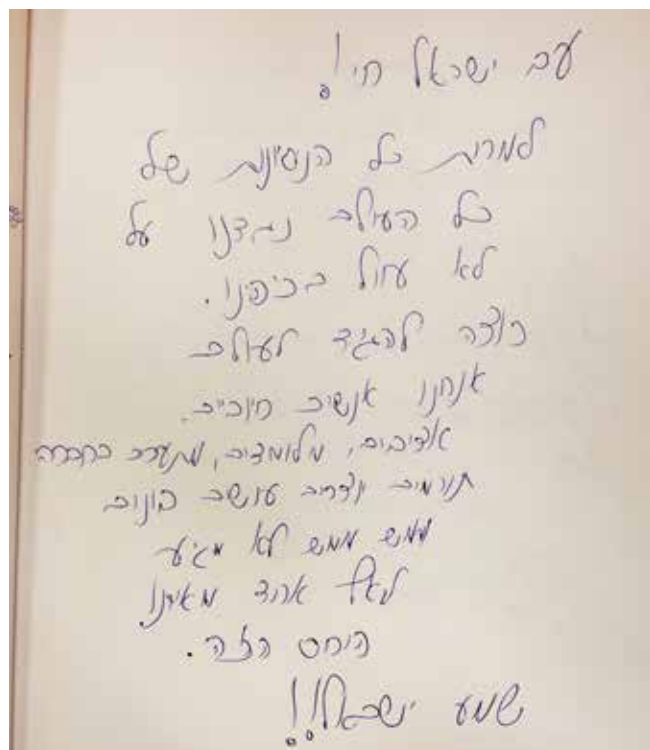 עם ישראל חי!
למרות כל הנסיונות של
כל העולם נגדנו על
לא עוול בכפינו.
רוצה להגיד לעולם
אנחנו אנשים חיוביים.
אדיבים, מלומדים, בחברה
תורמים עוזרים בונים
ממש ממש לא מגיע
לאף אחד מאיתנו
היחס הזה.
שמע ישראל!!